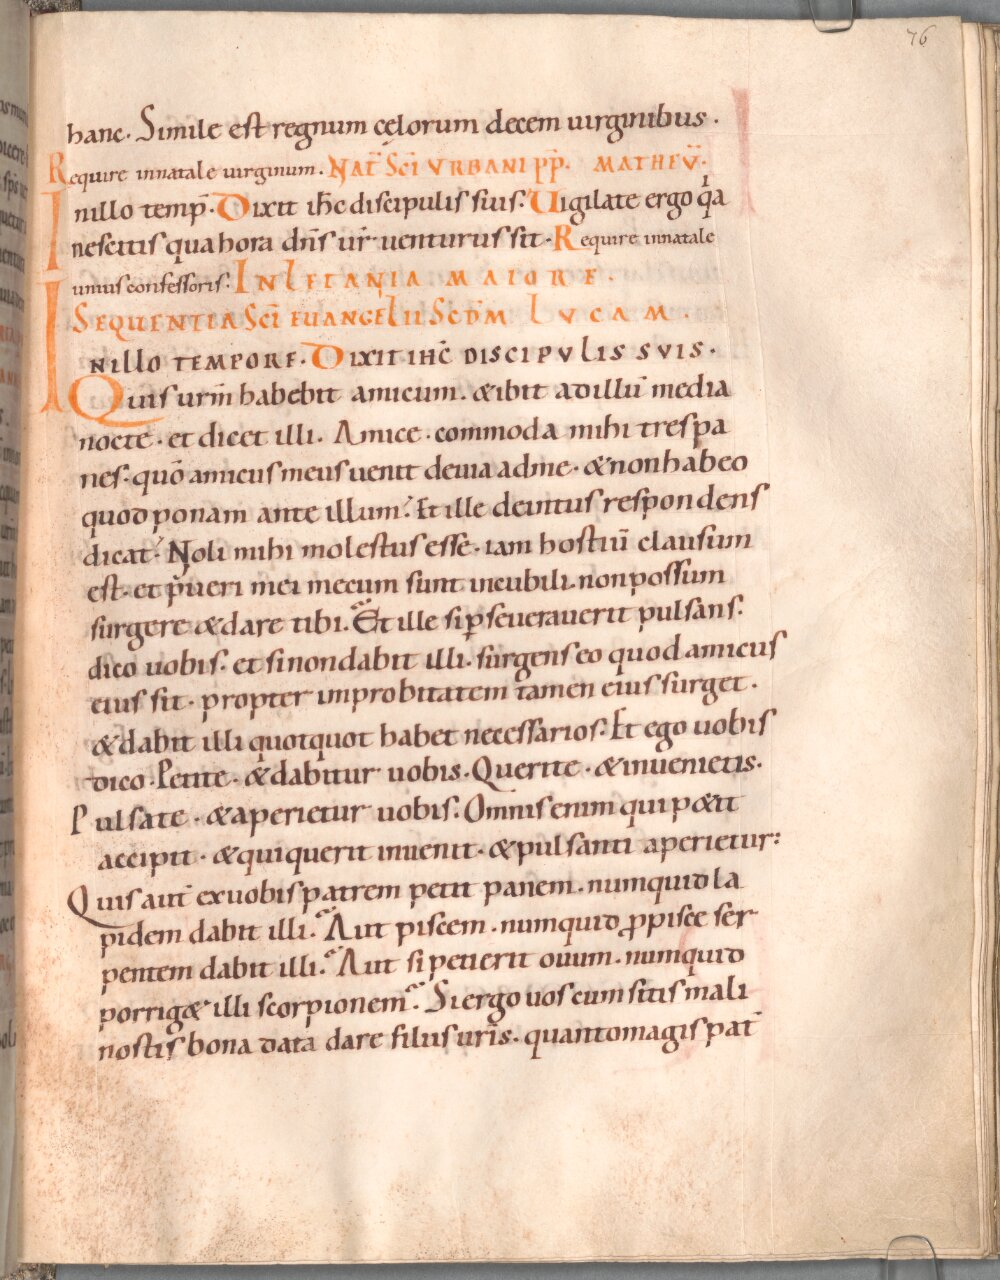 76
hanc. Simile est regnum cęlorum decem uirginibus.
Require innatale uirginum. NAT̄ SC̄I VRBANI PP̄. MATHEV̄.
Innillo temp̄. Dixit ih̄c discipulis suis. Uigilate ergo qͥa
nescitis qua hora dn̄s ur̄ uenturus sit. Require innatale
unius confessoris. IN LETANIA MAIORE.
SEQUENTIA SC̄I EUANGELII SCD̄M LVCAM.
INILLO TEMPORE. DIXIT IHC̄ DISCIPVLIS SVIS.
Quis urm̄ habebit amicum. &ibit adillū media
nocte. et dicet illi. Amice. commoda mihi trespa
nes. quō amicus meus uenit deuia adme. &nonhabeo
quod ponam ante illum. Et ille deintus respondens
dicat. Noli mihi molestus esse. iam hostiū clausum
est. et pueri mei mecum sunt incubili. non possum
surgere &dare tibi. Et ille si p̱seuerauerit pulsans.
dico uobis. et sinondabit illi. surgens eo quod amicus
eius sit. propter improbitatem tamen eius surget.
&dabit illi quotquot habet necessarios. Et ego uobis
dico. Petite. &dabitur uobis. Querite. &inuenietis.
Pulsate. &aperietur uobis. Omnis enim qui p&it
accipit. &qui querit inuenit. &pulsanti aperietur:
Quis aut̄ exuobis patrem petit panem. numquid la
pidem dabit illi. Aut piscem. numquid ꝓpisce ser
pentem dabit illi. Aut si petierit ouum. numquid
porrig& illi scorpionem. Si ergo uos cum sitis mali
nostis bona data dare filiis uris̄. quantomagis pat̄